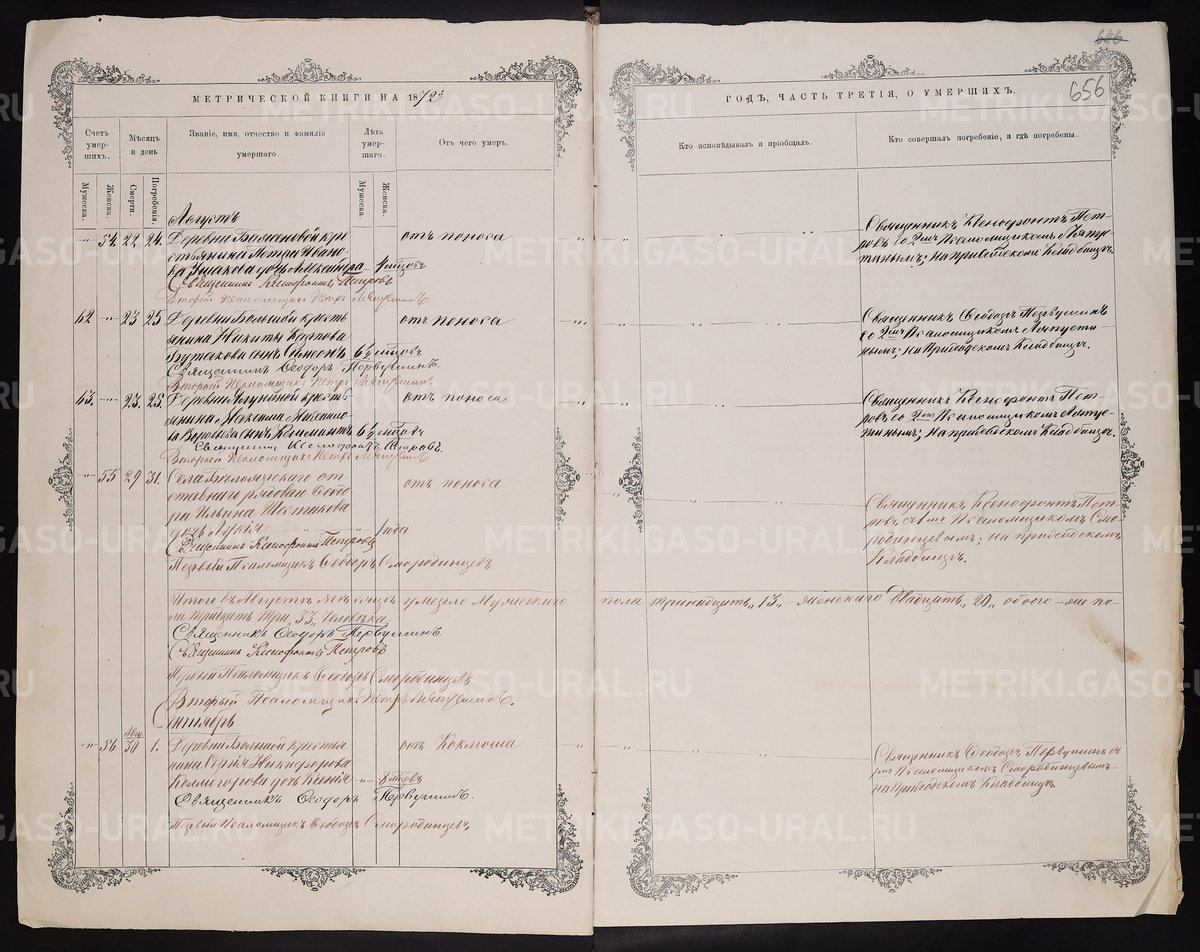 656
МЕТРИЧЕСКОЙ КНИГИ НА 1872й
ГОДЪ, ЧАСТЬ ТРЕТІЯ, О УМЕРШИХЪ.
Счетъ умерших.
Мѣсяцъ и день
Званіе, имя, отчество и фамилія умершаго.
Лѣта умершаго.
Отъ чего умеръ.
Кто исповѣдывалъ и пріобщалъ.
Кто совершалъ погребеніе, и гдѣ погребены.
Мужеска.
Женска.
Смерти.
Погребенія.
Мужеска.
Женска.
Августъ
54. 22. 24. Деревни
стьянина Петра Ивано-
ва дочь Александра 4 мцовъ
отъ поноса
Священникъ Ксенофонтъ Пет-
ровъ со 2мъ Псаломщикомъ
на приходскомъ Кладбищѣ.
Священникъ Ксенофонтъ Петровъ
Второй Псаломщикъ Петръ
62 23 25 Деревни Большой кресть-
янина Никиты Карпова
сынъ Симеонъ 6½ мцовъ
отъ поноса
Священникъ Ѳеодоръ Первушинъ
со 2мъ Псаломщикомъ
на Приходскомъ Кладбищѣ.
Священникъ Ѳеодоръ Первушинъ.
Второй Псаломщикъ Петръ
63. 23. 25. Деревни кресть-
янина Максима Михайло-
ва сынъ Климентъ 6½ мцовъ
отъ поноса
Священникъ Ксенофонтъ Пет-
ровъ со 2мъ Псаломщикомъ
на приходскомъ Кладбищѣ.
Священникъ Ксенофонтъ Петровъ.
Второй Псаломщикъ Петръ
55 29 31. Села от-
ставнаго рядоваго Ѳедо-
ра Ильина Шестакова
дочь Лукія 1 года
отъ поноса
Священникъ Ксенофонтъ Пет-
ровъ съ 1мъ Псаломщикомъ Смо-
родинцевымъ; на приходскомъ
Кладбищѣ.
Священникъ Ксенофонтъ Петровъ
Первый Псаломщикъ Ѳеодоръ Смородинцевъ
Итого въ Августѣ мѣсяцѣ умерло мужескаго пола тринадцать „13„ женскаго двадцать „20„ обоего-же по-
ла тридцать три „33„ человѣка.
Священникъ Ѳеодоръ Первушинъ.
Священникъ Ксенофонтъ Петровъ
Первый Псаломщикъ Ѳеодоръ Смородинцевъ
Второй Псаломщикъ Петръ
Сентябрь
56 Авг. 30 1. Деревни Большой крестья-
нина Сергѣя Никифорова
Колмогорова дочь 8 мцовъ
отъ Кокльюша
Священникъ Ѳеодоръ Первушинъ съ
1мъ Псаломщикомъ Смородинцевымъ
на Приходскомъ Кладбищѣ.
Священникъ Ѳеодоръ Первушинъ.
Первый Псаломщикъ Ѳеодоръ Смородинцевъ
METRIKI.GASO-URAL.RU